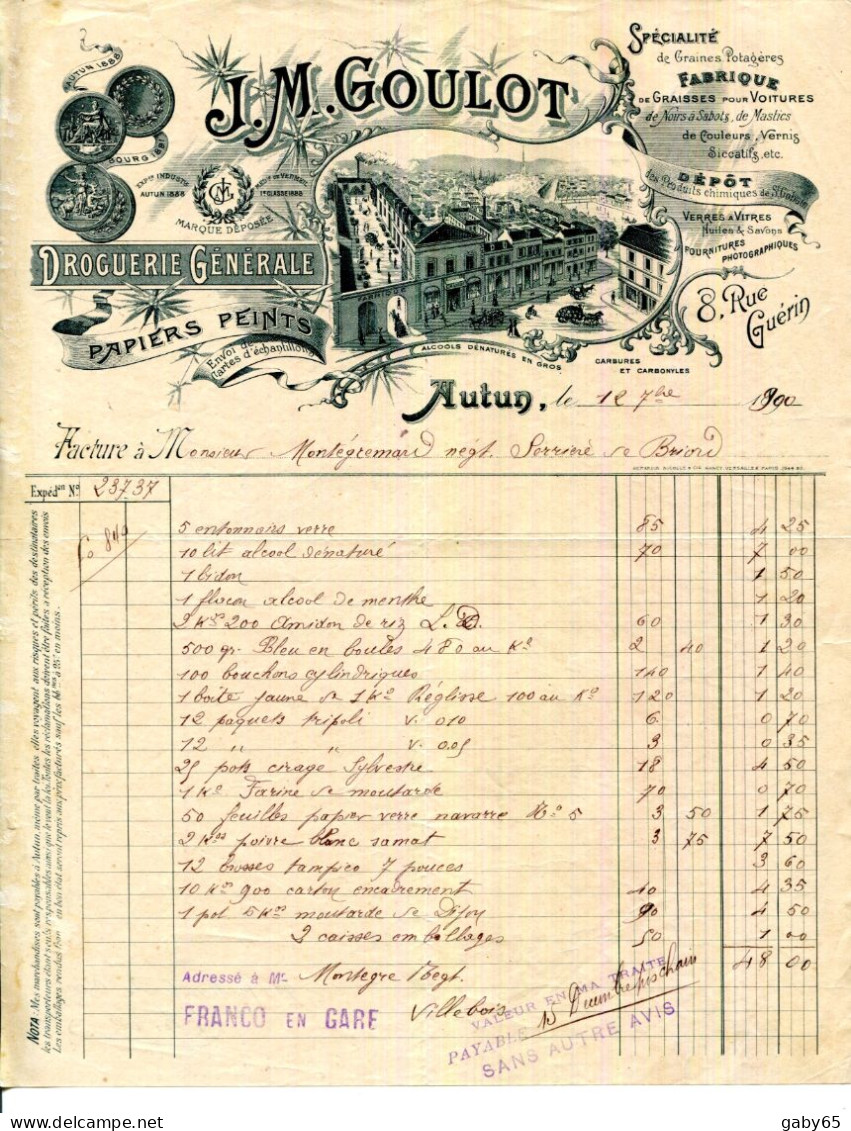 J.M. GOULOT
AUTUN 1888
BOURG 1891
EXPon INDUSTle
AUTUN 1888
1re CLASSE 1888
MARQUE DÉPOSÉE
DROGUERIE GÉNÉRALE
PAPIERS PEINTS
Envoi de
Cartes d'échantillons
FABRIQUE
ALCOOLS DÉNATURÉS EN GROS
CARBURES
ET CARBONYLES
SPÉCIALITÉ
de Graines Potagères
FABRIQUE
DE GRAISSES POUR VOITURES
de Noirs à Sabots, de Mastics
de Couleurs, Vernis
Siccatifs, etc.
DÉPÔT
des Produits chimiques de St Gobain
VERRES A VITRES
Huiles & Savons
FOURNITURES
PHOTOGRAPHIQUES
8, Rue
Guérin
Autun, le 12 7bre 1900
Facture à Monsieur Montégremard negt. Serrière de Briord
Expédon No 23737
5 entonnoirs verre 85 4 25
10 lit alcool dénaturé 70 7 00
1 bidon 1 50
1 flacon alcool de menthe 1 20
2 Kos 200 Amidon de riz 60 1 30
500 gr. Bleu en boules 480 au Ko 2 40 1 20
100 bouchons cylindriques 140 1 40
1 boîte jaune de 1 Ko Réglisse 100 au Ko 120 1 20
12 paquets tripoli V. 0.10 6 0 70
12 " " V. 0.05 3 0 35
25 pots cirage Sylvestre 18 4 50
1 Ko Farine de moutarde 70 0 70
50 feuilles papier verre navarre No 5 3 50 1 75
2 Kos poivre blanc samat 3 75 7 50
12 brosses tampico 7 pouces 3 60
10 Kos 900 carton encadrement 40 4 35
1 pot 5 Kos moutarde de Dijon 90 4 50
2 caisses emballages 50 1 00
48 00
Adressé à Mr Montegre negt.
Villebois
FRANCO EN GARE
VALEUR EN MA TRAITE
PAYABLE Décembre prochain
SANS AUTRE AVIS
NOTA: Mes marchandises sont payables à Autun, même par traites, elles voyagent aux risques et périls des destinataires
les transporteurs étant seuls responsables
gaby65